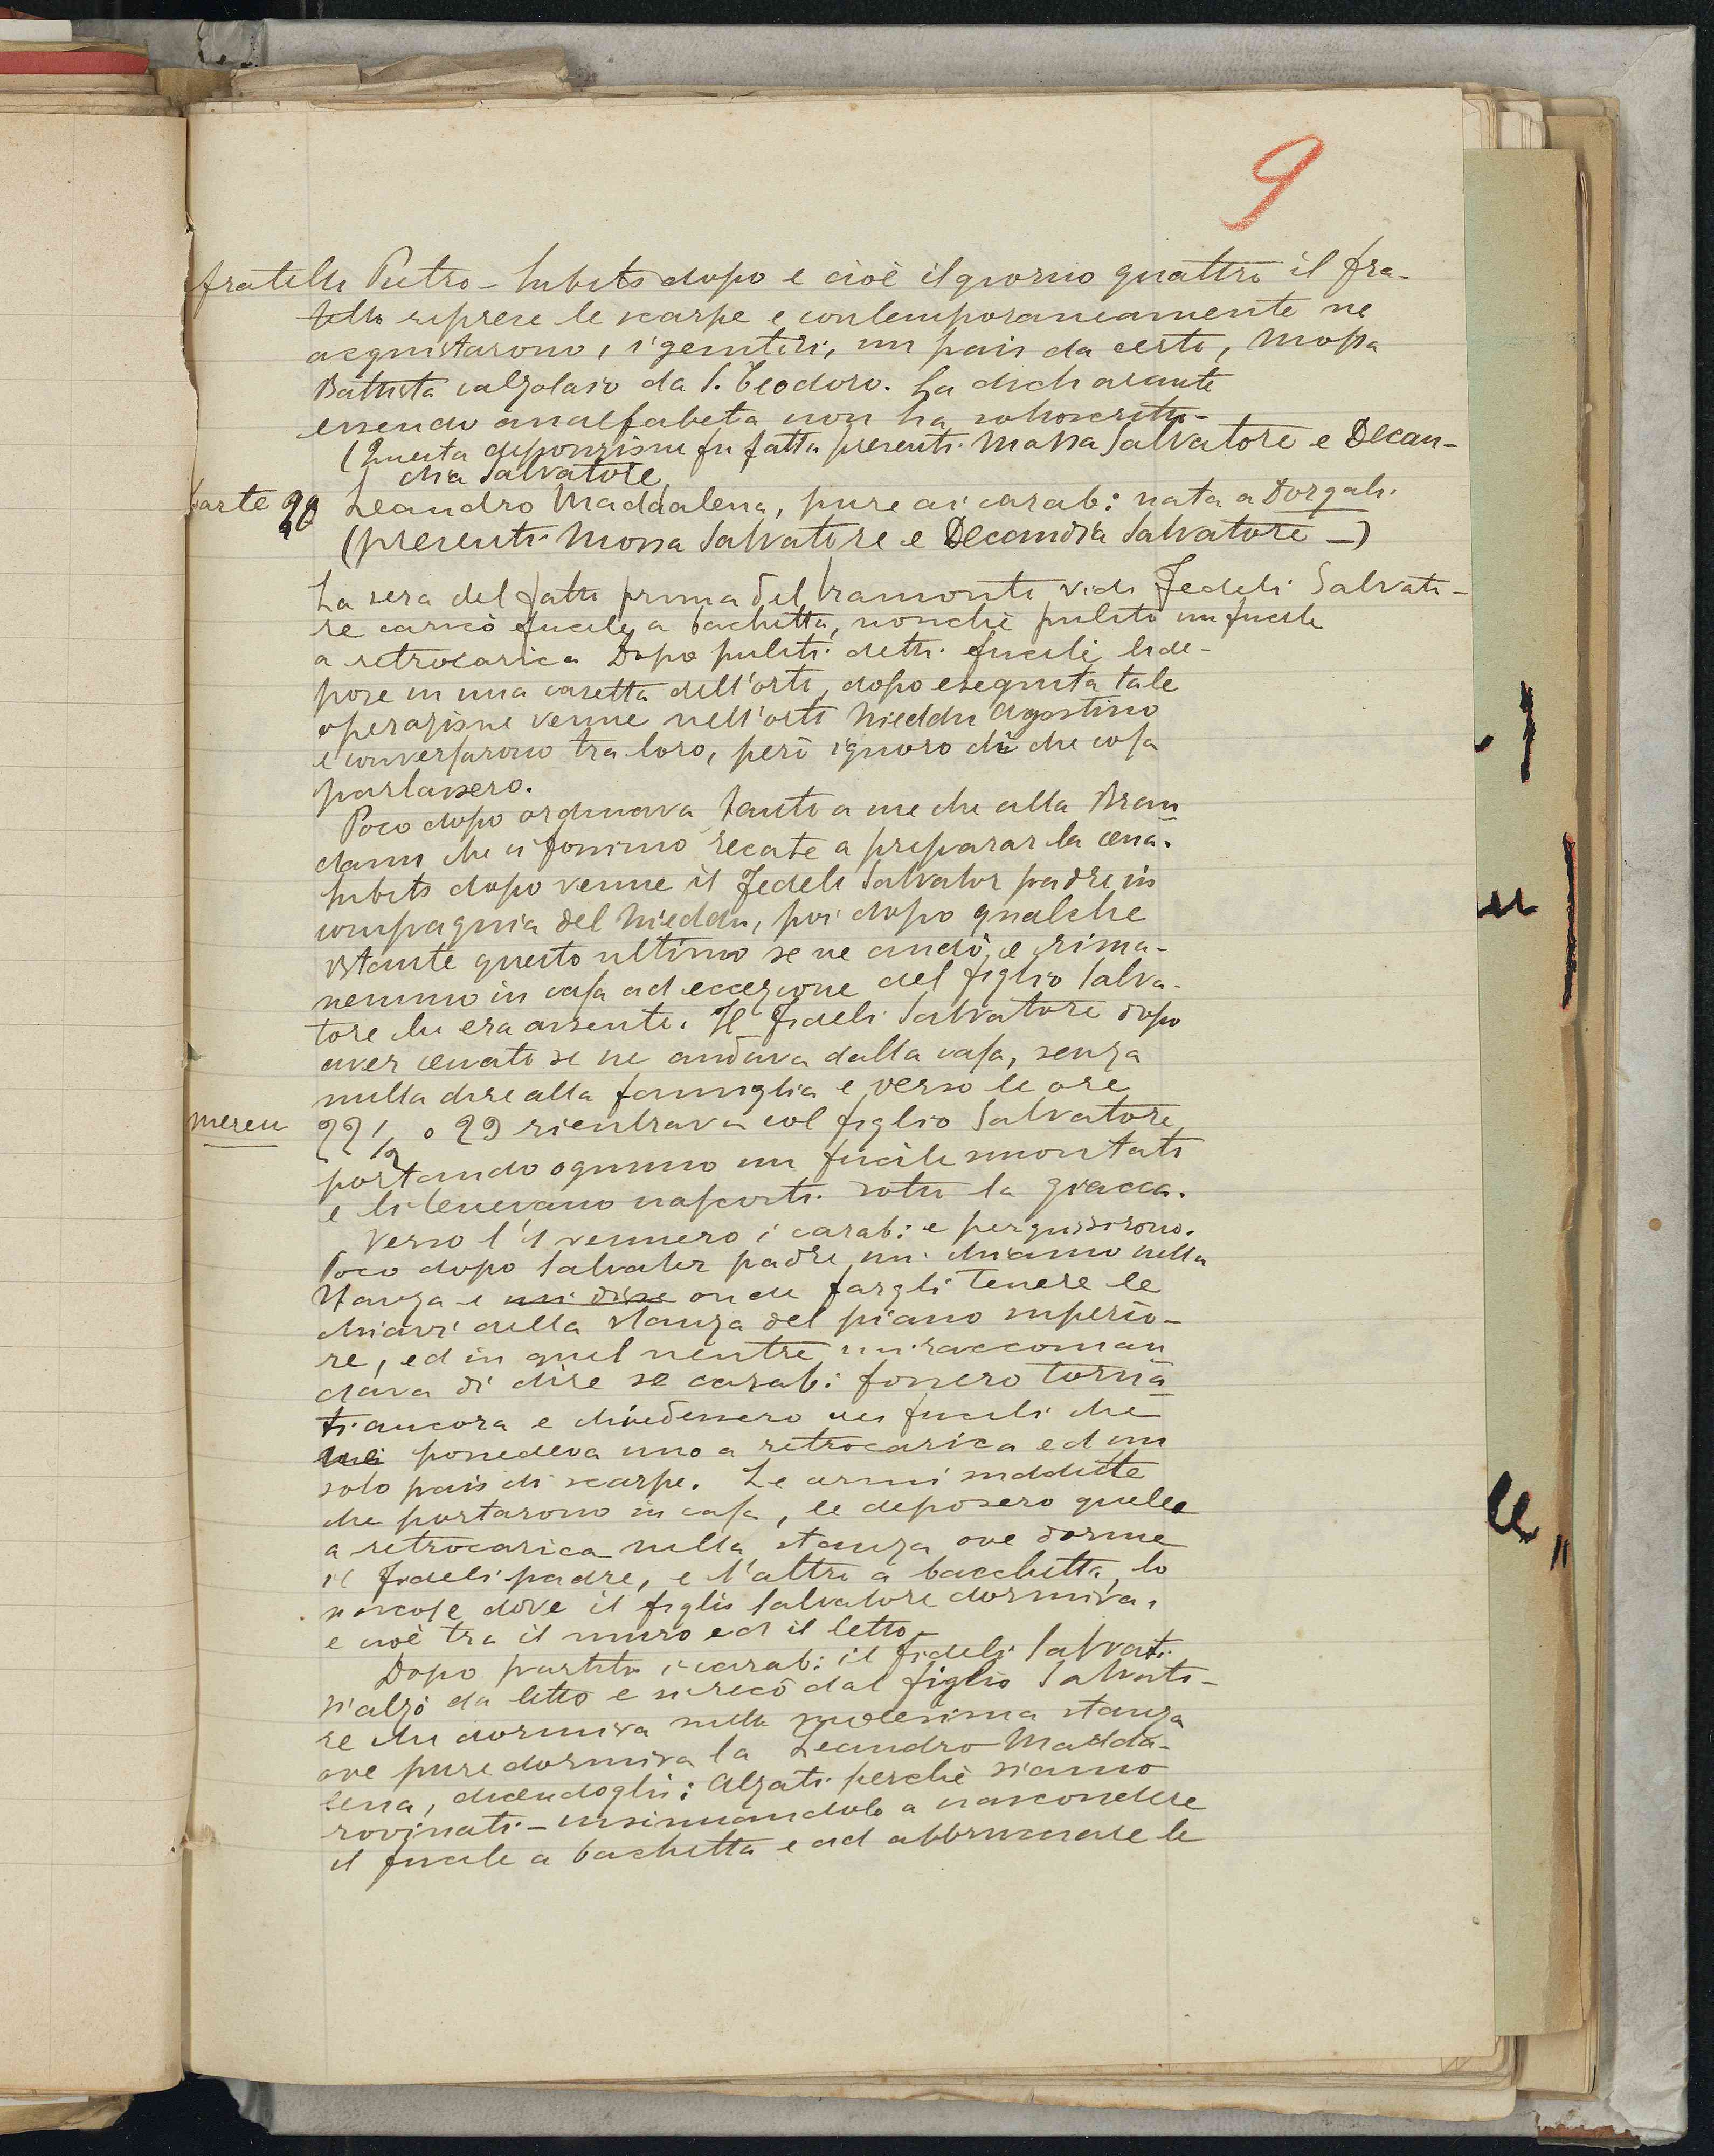 9
fratello Pietro - Subito dopo e cioè il giorno quattro il fra-
tello riprese le scarpe e contemporaneamente ne
acquistarono, i genitori, un paio da certo, Mossa
Battista calzolaio da S. Teodoro. La dichiarante
essendo analfabeta non ha sottoscritto -
(Questa deposizione fu fatta presenti Mossa Salvatore e Decan-
dia Salvatore
parte 20 Leandro Maddalena, pure ai carab: nata a Dorgali.
(presenti Mossa Salvatore e Decandia Salvatore -)
La sera del fatto prima del tramonto vidi Fedeli Salvato-
re caricò fucile a bachetta, nonchè pulito un fucile
a retrocarica Dopo puliti detti fucili li de-
pose in una casetta dell'orto, dopo eseguita tale
operazione venne nell'orto Nieddu Agostino
e conversarono tra loro, però ignoro di che cosa
parlassero.
Poco dopo ordinava tanto a me che alla Bran
danu che ci fossimo recate a preparar la cena.
Subito dopo venne il Fedele Salvator padre in
compagnia del Nieddu, poi dopo qualche
istante questo ultimo se ne andò, e rima-
nemmo in casa ad eccezione del figlio Salva-
tore che era assente. Il Fideli Salvatore dopo
aver cenato se ne andava dalla casa, senza
nulla dire alla famiglia e verso le ore
mereu 22 1/2 o 23 rientrava col figlio Salvatore
portando ognuno un fucile smontato
e li tenevano nascosti sotto la giacca.
Verso l'1 vennero i carab: e perquisirono.
Poco dopo Salvator padre mi chiamò nella
stanza e mi disse onde fargli tenere le
chiavi della stanza del piano superio-
re, ed in quel mentre mi raccoman
dava di dire se carab: fossero torna
ti ancora e chiedessero dei fucili che
lui possedeva uno a retrocarica ed un
solo paio di scarpe. Le armi suddette
che portarono in casa, le deposero quello
a retrocarica nella stanza ove dorme
il Fideli padre, e l'altro a bacchetta, lo
nascose dove il figlio Salvatore dormiva,
e cioè tra il muro ed il letto -
Dopo partiti i carab: il Fideli Salvat.
s'alzò da letto e si recò dal figlio Salvato-
re che dormiva nella medesima stanza
ove pure dormiva la Leandro Madda-
lena, dicendogli: Alzati perchè siamo
rovinati - insinuandolo a nascondere
il fucile a bachetta e ad abbruciare le